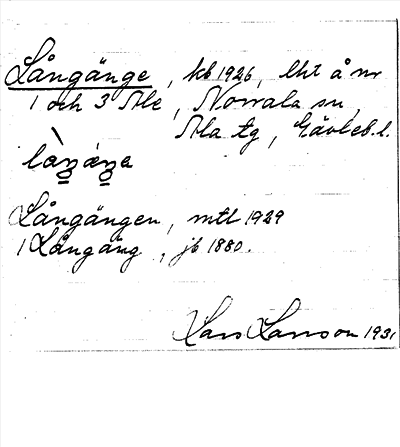 Långänge, kb 1926, lht å nr
1 och 3 Ale, Norrala sn,
Ala tg, Gävleb.l.
làŋáŋa
Långängen, mtl 1929
1 Långäng, jb 1880.
Lars Larsson 1931